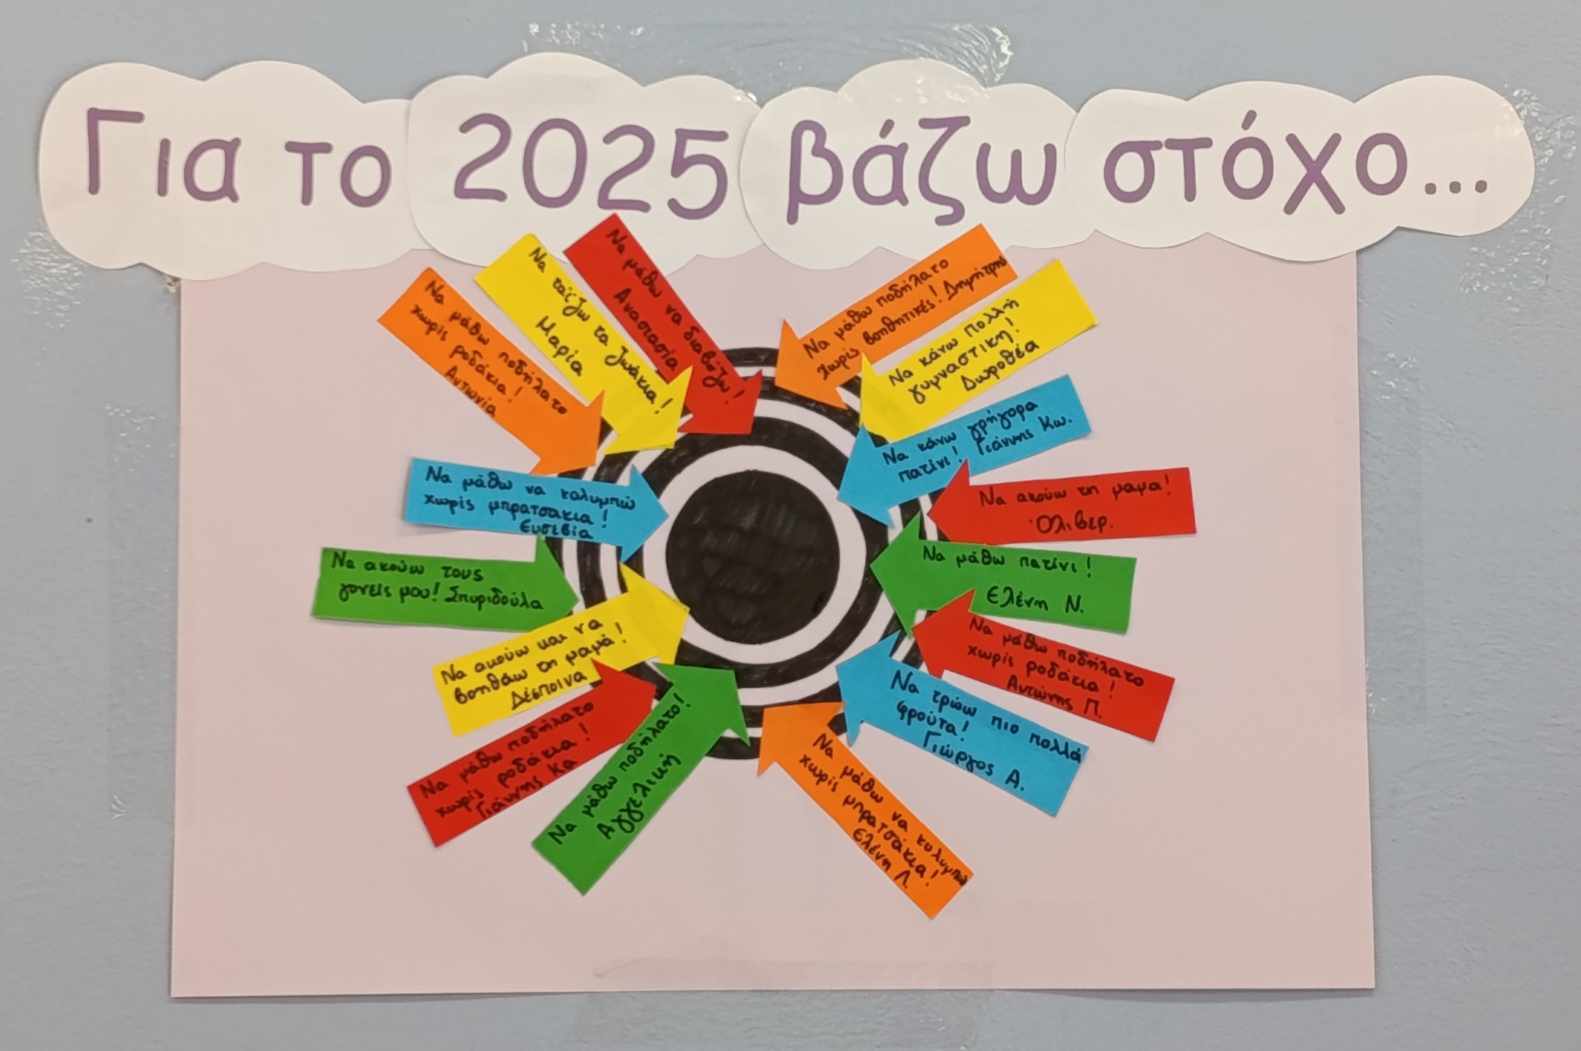 Για το 2025 βάζω στόχο...
Να μάθω ποδήλατο
χωρίς ροδάκια!
Αντωνία
Να ταΐζω τα ζωάκια!
Μαρία
Να μάθω να διαβάζω!
Αναστασία
Να μάθω ποδήλατο
χωρίς βοηθητικές! Δημήτρης
Να κάνω πολλή
γυμναστική!
Δωροθέα
Να κάνω γρήγορα
πατίνι! Γιάννης Κω.
Να ακούω τη μαμα!
Όλιβερ.
Να μάθω πατίνι!
Ελένη Ν.
Να μάθω ποδήλατο
χωρίς ροδάκια!
Αντώνης Π.
Να τρώω πιο πολλά
φρούτα!
Γιώργος Α.
Να μάθω να κολυμπώ
χωρίς μπρατσάκια!
Ελένη Λ.
Να μάθω ποδήλατο!
Αγγελική
Να μάθω ποδήλατο
χωρίς ροδάκια!
Γιάννης Κα
Να ακούω και να
βοηθάω τη μαμά!
Δέσποινα
Να ακούω τους
γονείς μου! Σπυριδούλα
Να μάθω να κολυμπώ
χωρίς μπρατσάκια!
Ευσεβία